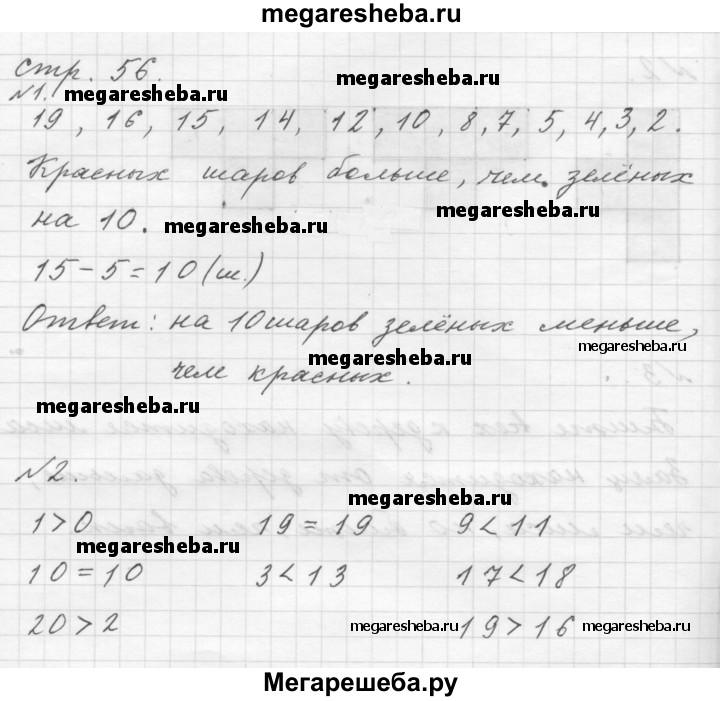 megaresheba.ru
стр. 56.
megaresheba.ru
№1.
megaresheba.ru
megaresheba.ru
19, 16, 15, 14, 12, 10, 8, 7, 5, 4, 3, 2.
Красных шаров больше, чем зелёных
megaresheba.ru
на 10.
megaresheba.ru
15-5=10(ш.)
Ответ: на 10 шаров зелёных меньше,
megaresheba.ru
megaresheba.ru
чем красных.
megaresheba.ru
№2.
megaresheba.ru
1>0 19=19 9<11
megaresheba.ru
10=10 3<13 17<18
20>2 19>16
megaresheba.ru
megaresheba.ru
Мегарешеба.ру